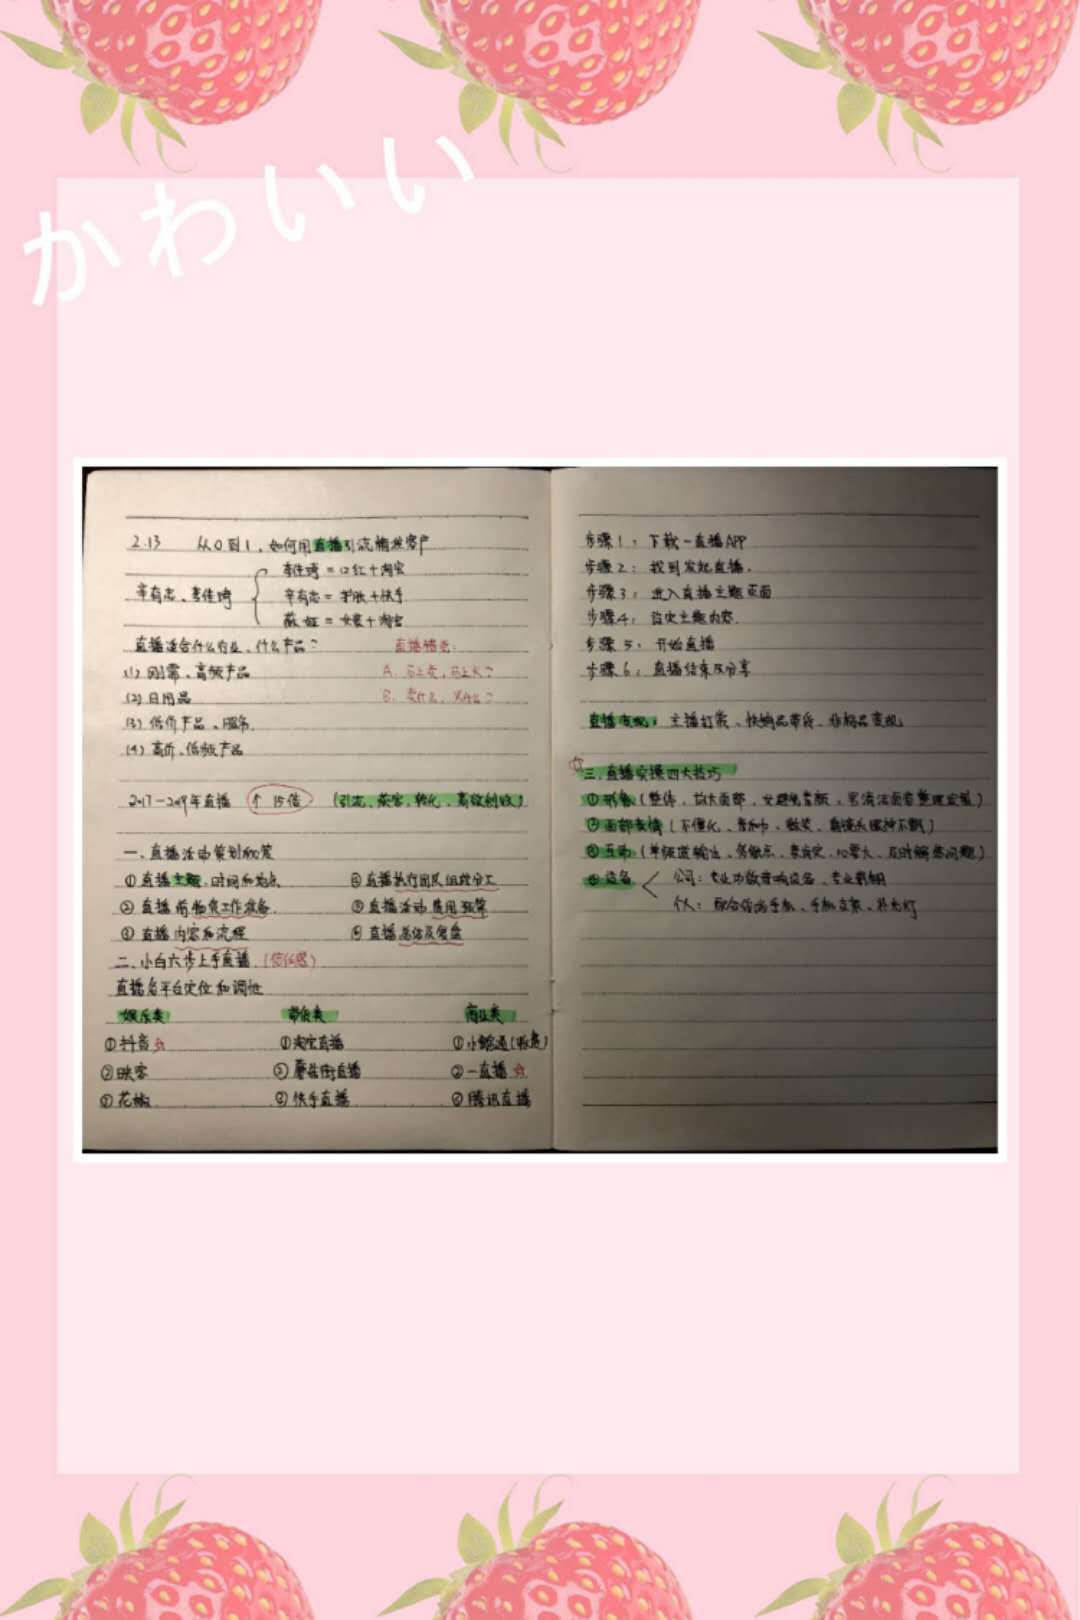 かわいい
2.13 从0到1，如何用直播引流精准客户
李佳琦 = 口红+淘宝
辛有志、李佳琦
辛有志 = +快手
薇娅 = 女装+淘宝
直播适合什么行业、什么产品？ 直播
(1) 刚需、高频产品 A、马上卖，马上火？
(2) 日用品 B、卖什么，火什么？
(3) 低价产品、服务
(4) 高价、低频产品
2017-2019年直播 ↑15倍 (引流、获客、转化、高效创收)
一、直播活动策划秘笈
①直播主题、时间和地点 ④直播执行团队组成分工
②直播前物资工作准备 ⑤直播活动费用预算
③直播内容和流程 ⑥直播总结及复盘
二、小白六步上手直播 (信任感)
直播各平台定位和调性
娱乐类 带货类 商业类
①抖音☆ ①淘宝直播 ①小鹅通(收费)
②映客 ②蘑菇街直播 ②一直播☆
③花椒 ③快手直播 ③腾讯直播
步骤1：下载一直播APP
步骤2：找到发起直播。
步骤3：进入直播主题页面
步骤4：设定主题内容.
步骤5：开始直播
步骤6：直播结束及分享
直播变现：主播打赏、快销品带货、非标品变现
☆三、直播实操四大技巧
①形象(整体、放大面部、女避免素颜、男清洁面容整理发型)
②面部表情(不僵化、亲和力、微笑、直镜头眼神不飘)
③互动(单频道输出、及时解答问题)
④设备 公司：专业功放音响设备、专业
个人：配合你的手机、手机支架、补光灯